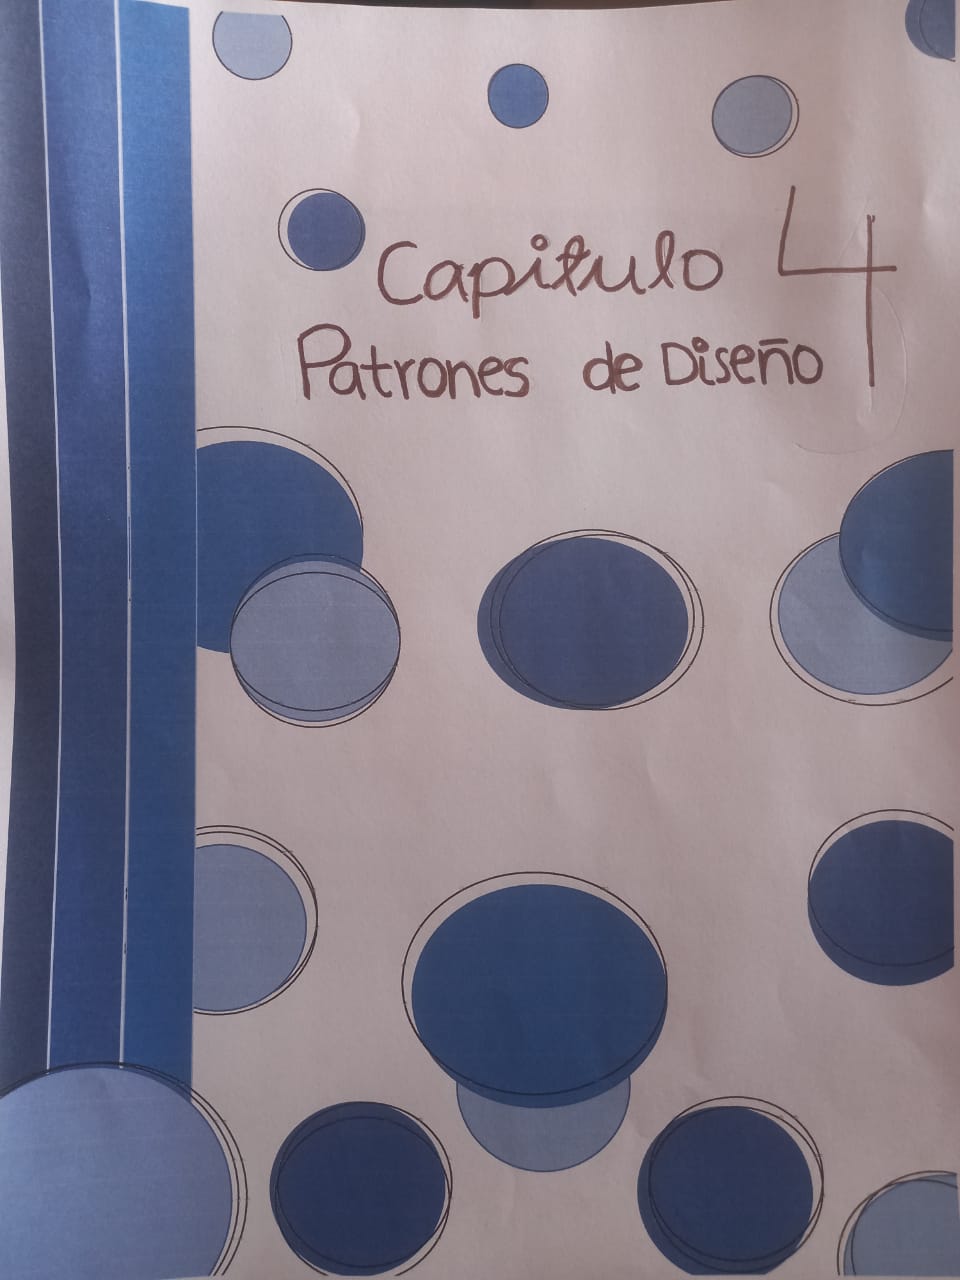 Capitulo 4
Patrones de Diseño